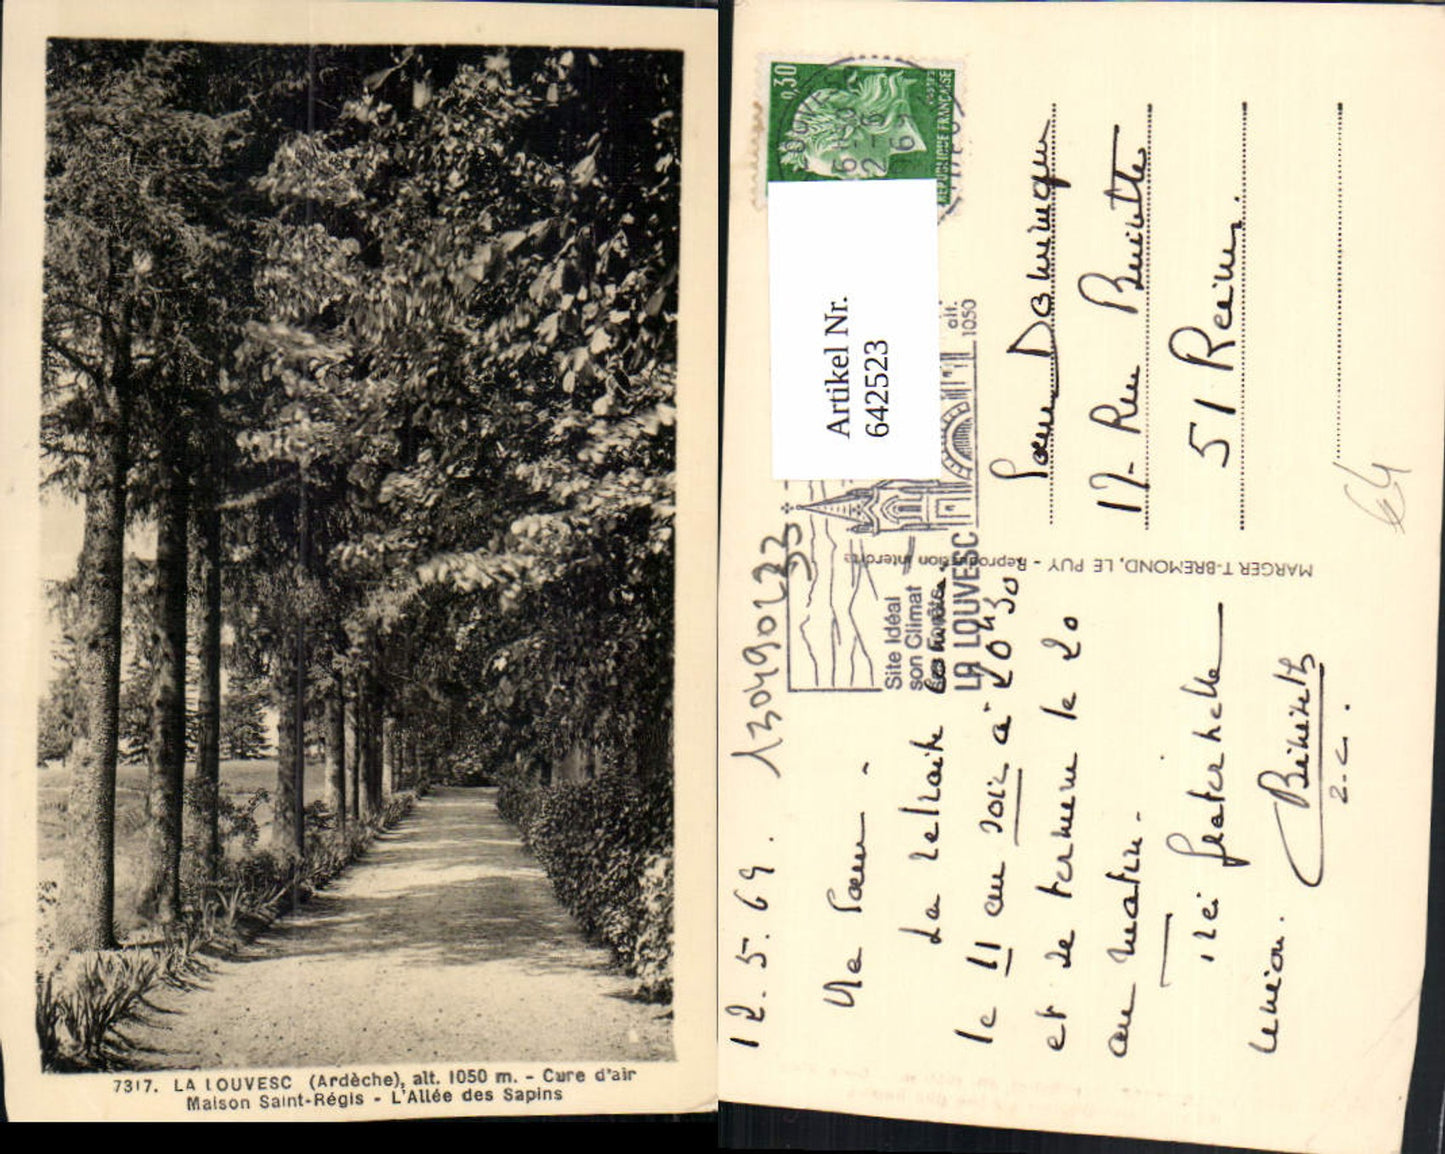 7317. LA LOUVESC (Ardèche), alt. 1050 m. - Cure d'air
Maison Saint-Régis - L'Allée des Sapins
0,30
POSTES
REPUBLIQUE FRANÇAISE
Artikel Nr.
642523
Site Idéal
son Climat
LA LOUVESC
alt.
1050
MARGERIT-BREMOND, LE PUY - Reproduction interdite
12.5.69.
Ma Sœur -
La retraite commence
le 11 au soir à 20h30
et se termine le 20
au matin -
Très fraternelle
union.
Sœur Dominique
17 - Rue Buirette
51 Reims.